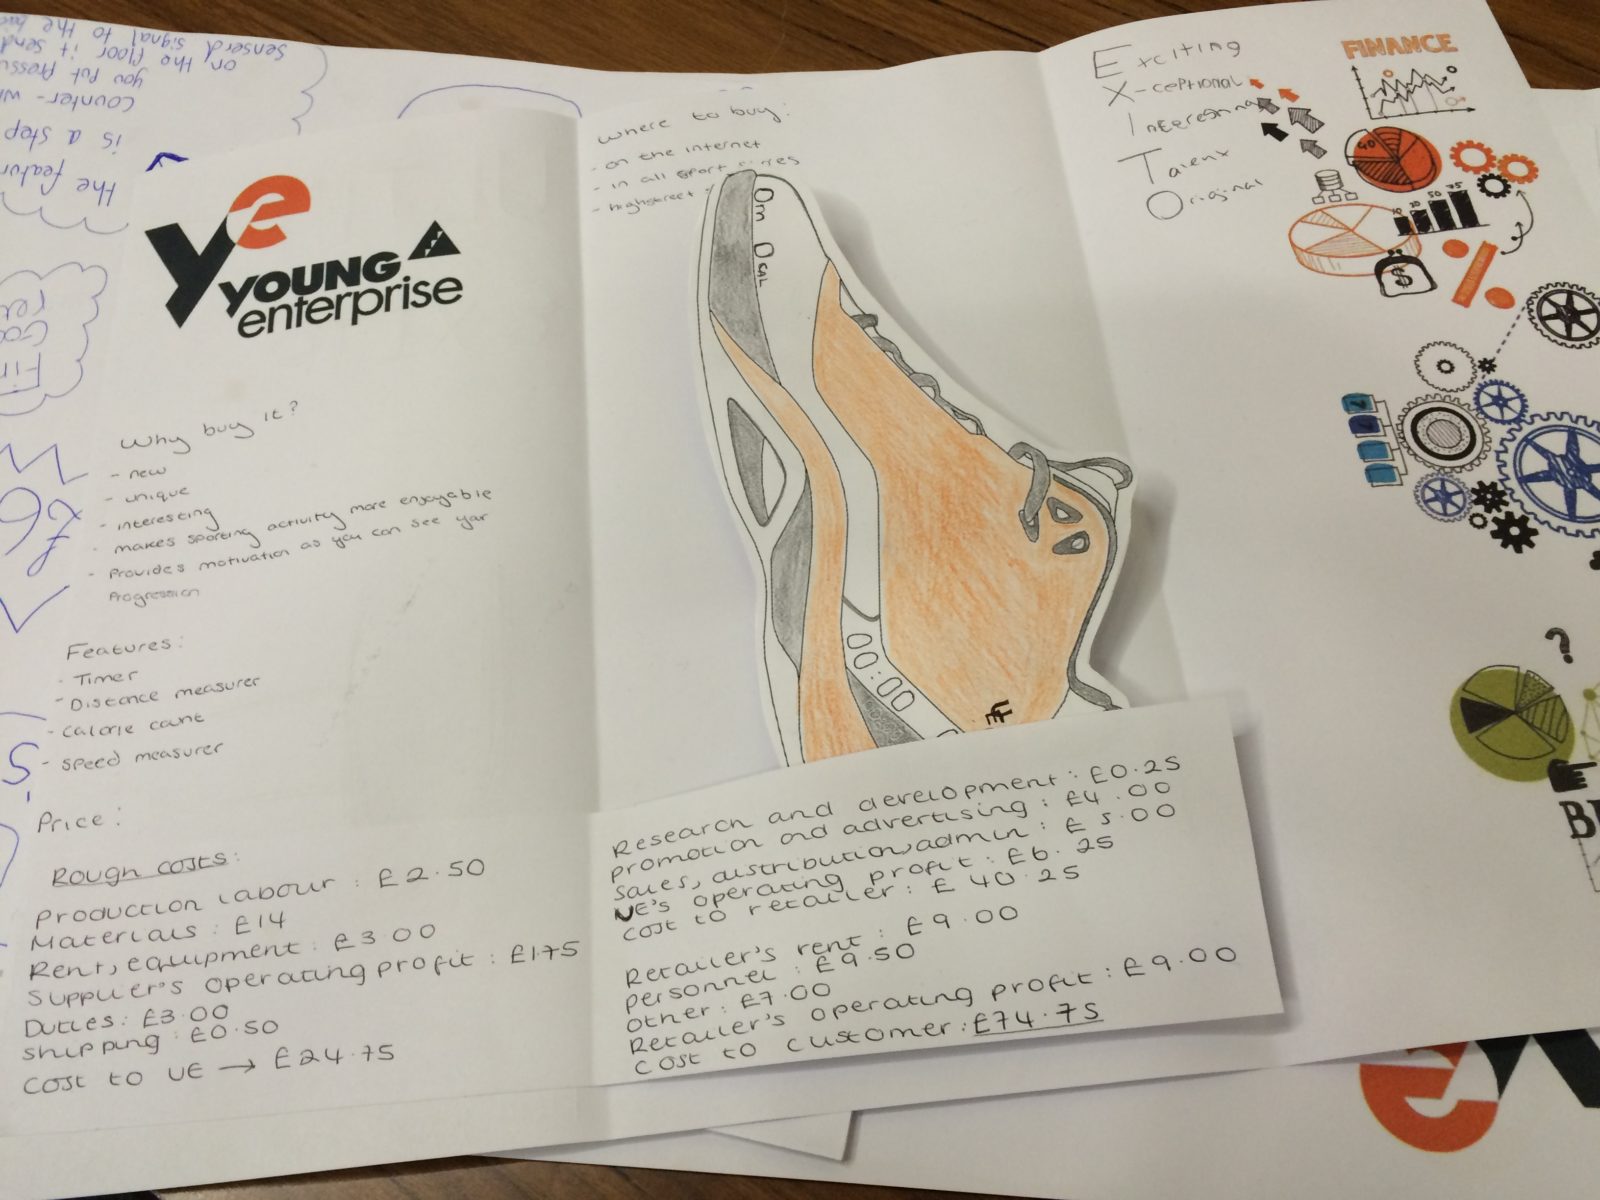 senserd signal to the
on the floor it send
you put pressu
counter-
is a step
the featur
Fin
£6
S
ye
YOUNG
enterprise
Why buy it?
- new
- unique
- interesting
- makes sporting activity more enjoyable
- Provides motivation as you can see your
Progression
Features:
- Timer
- Distance measurer
- calorie count
- speed measurer
Price:
Rough costs:
production labour: £2.50
Materials: £14
Rent, equipment: £3.00
Supplier's operating profit: £1.75
Duties: £3.00
shipping: £0.50
Cost to UE → £24.75
where to buy:
- on the internet
- in all sport
- highstreet
0m 0cal
00:00
UE
Research and development: £0.25
promotion and advertising: £4.00
Sales, distribution, admin: £5.00
UE's operating profit: £6.25
cost to retailer: £40.25
Retailer's rent: £9.00
personnel: £9.50
other: £7.00
Retailer's operating profit: £9.00
Cost to customer: £74.75
Exciting
X-ceptional
Interesting
Talent
Original
FINANCE
50
50 75
$
%
?